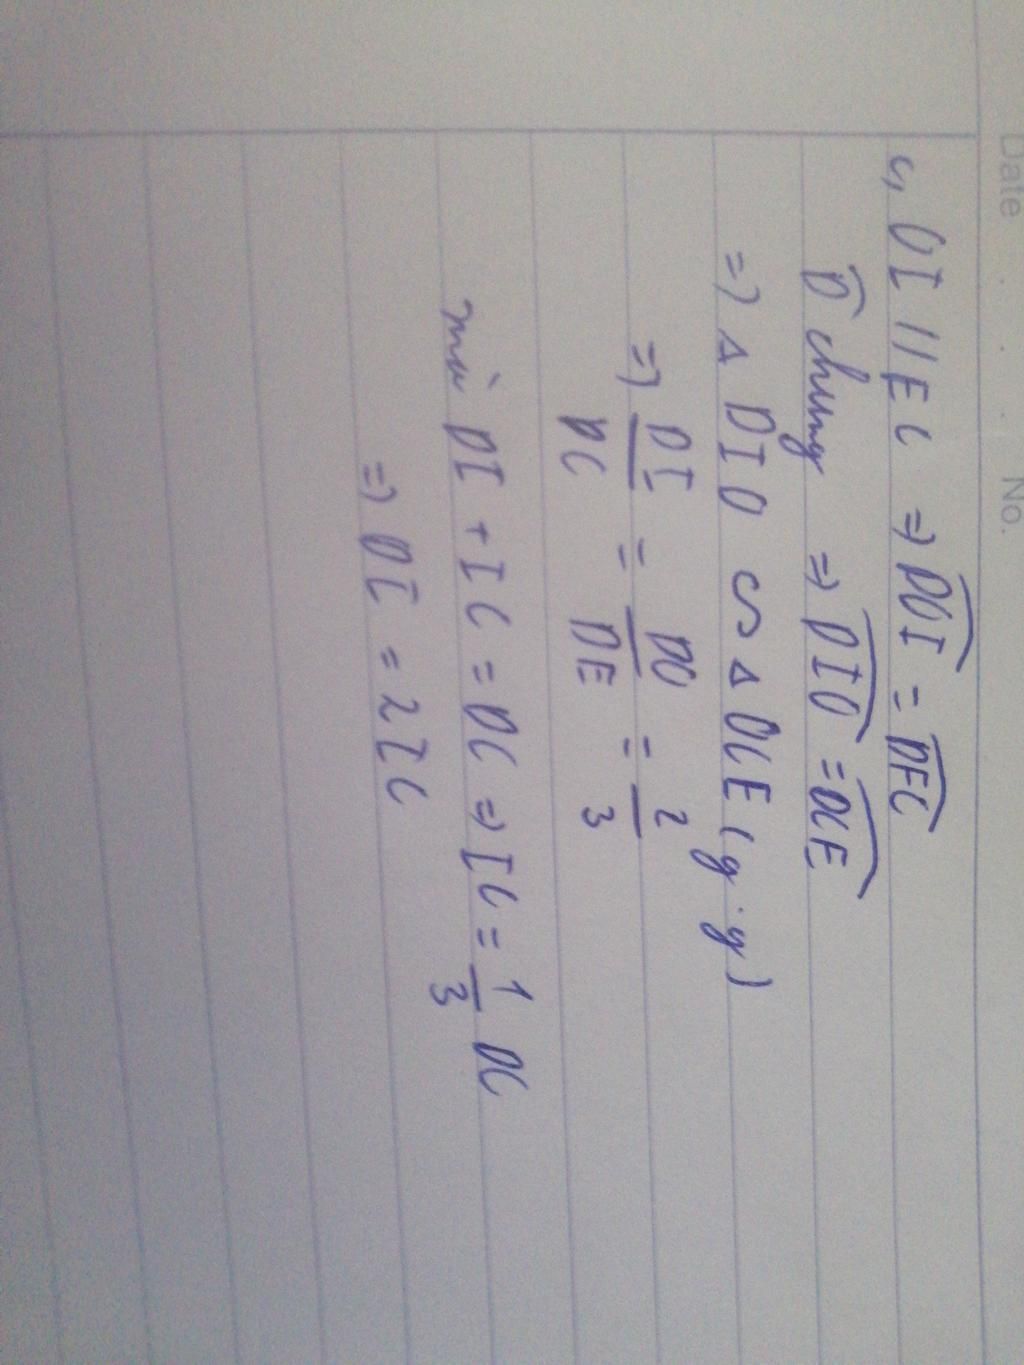 Date No.
c, OI // EC => \widehat{DOI} = \widehat{DEC}
\widehat{D} chung => \widehat{DIO} = \widehat{DCE}
=> Δ DIO ∽ Δ DCE (g.g)
=> DI/DC = DO/DE = 2/3
mà DI + IC = DC => IC = 1/3 DC
=> DI = 2IC